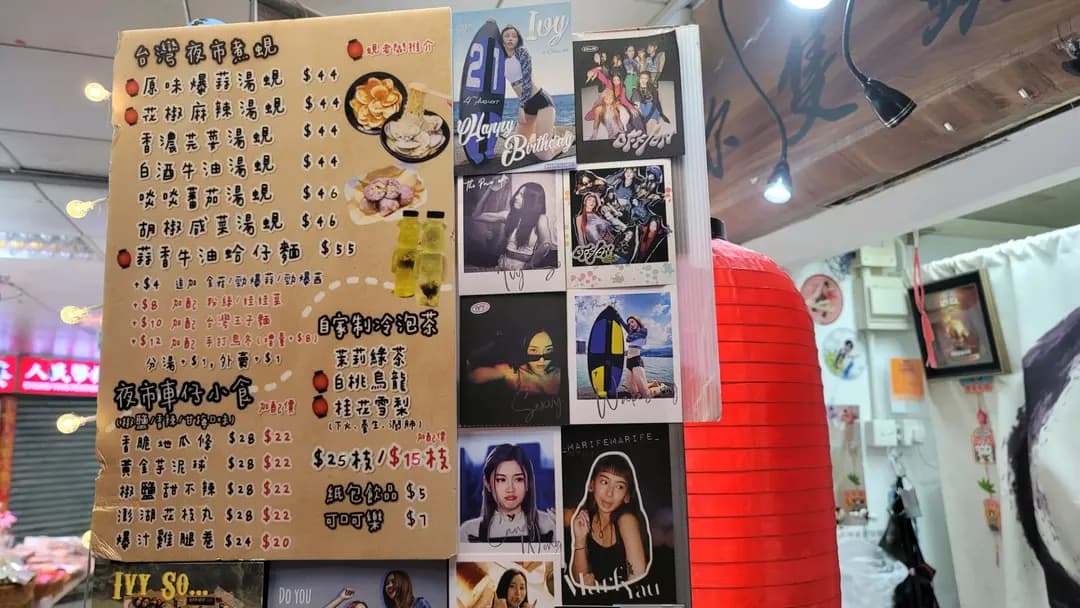 台灣夜市煮蜆
蜆老闆推介
原味爆蒜湯蜆 $44
花椒麻辣湯蜆 $44
香濃芫荽湯蜆 $44
白酒牛油湯蜆 $44
啖啖蕃茄湯蜆 $46
胡椒咸菜湯蜆 $46
蒜香牛油蛤仔麵 $55
+$4 追加
+$8 加配 粉絲/娃娃菜
+$10 加配 台灣王子麵
+$12 加配 手打烏冬
分湯+$1, 外賣+$1
夜市車仔小食
加配價
香脆地瓜條 $28 $22
黃金芋泥球 $28 $22
椒鹽甜不辣 $28 $22
澎湖花枝丸 $28 $22
爆汁雞腿卷 $24 $20
自家制冷泡茶
茉莉綠茶
白桃烏龍
桂花雪梨
(下火、養生、潤肺)
加配價
$25枝/$15枝
紙包飲品 $5
可口可樂 $7
Ivy
21
Happy
Birthday
_MARIFEMARIFE_
Marf Yau
IVY SO...
DO YOU
人民警